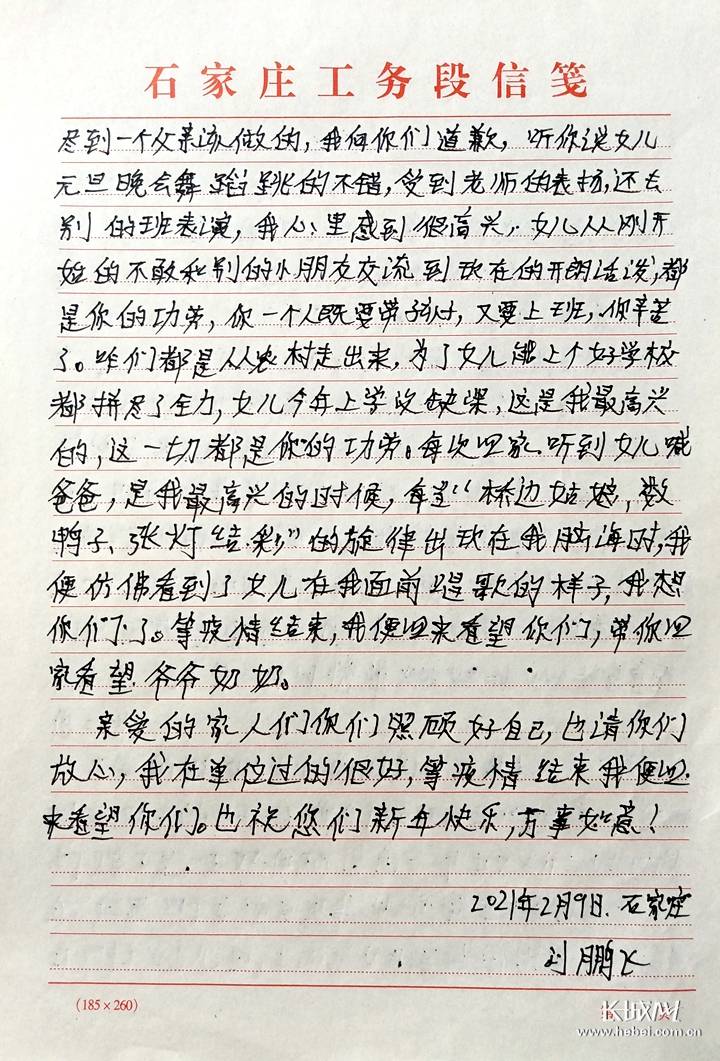 石家庄工务段信笺
尽到一个父亲该做的，我向你们道歉，听你说女儿
元旦晚会舞蹈跳的不错，受到老师的表扬，还去
别的班表演，我心里感到很高兴，女儿从刚开
始的不敢和别的小朋友交流到现在的开朗活泼，都
是你的功劳，你一个人既要带孩子，又要上班，你辛苦
了。咱们都是从农村走出来，为了女儿能上个好学校
都拼尽了全力，女儿今年上学没缺课，这是我最高兴
的，这一切都是你的功劳。每次回家听到女儿喊
爸爸，是我最高兴的时候，每当“桥边姑娘，数
鸭子、张灯结彩”的旋律出现在我脑海时，我
便仿佛看到了女儿在我面前唱歌的样子，我想
你们了。等疫情结束，我便回来看望你们，带你回
家看望爷爷奶奶。
亲爱的家人们你们照顾好自己，也请你们
放心，我在单位过的很好，等疫情结束我便回
来看望你们。也祝您们新年快乐，万事如意！
2021年2月9日.石家庄
刘鹏飞
(185×260)
长城网
www.hebei.com.cn